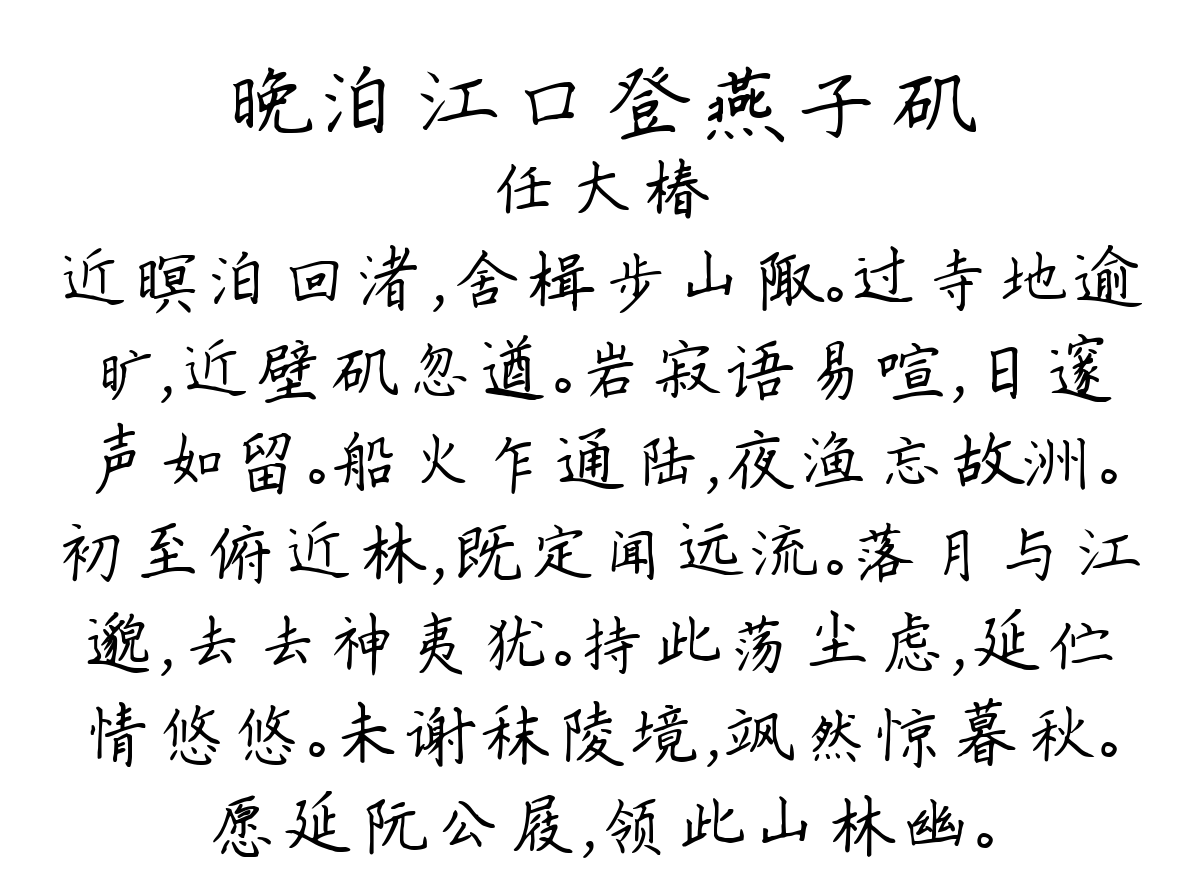 晚泊江口登燕子矶
任大椿
近暝泊回渚,舍楫步山陬。过寺地逾
旷,近壁矶忽遒。岩寂语易喧,日邃
声如留。船火乍通陆,夜渔忘故洲。
初至俯近林,既定闻远流。落月与江
邈,去去神夷犹。持此荡尘虑,延伫
情悠悠。未谢秣陵境,飒然惊暮秋。
愿延阮公屐,领此山林幽。